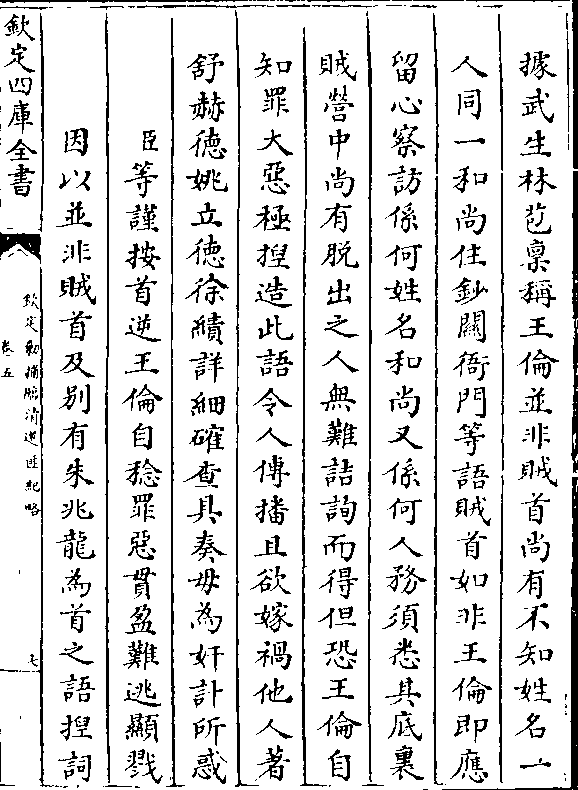 據武生林苞稟稱王倫並非賊首尚有不知姓名一
人同一和尚住鈔關衙門等語賊首如非王倫即應
留心察訪係何姓名和尚又係何人務須悉其底裏
賊營中尚有脫出之人無難詰詢而得但恐王倫自
知罪大惡極揑造此語令人傳播且欲嫁禍他人著
舒赫德姚立德徐績詳細確查具奏毋為奸計所惑
臣等謹按首逆王倫自稔罪惡貫盈難逃顯戮
因以並非賊首及別有朱兆龍為首之語揑詞
欽定四庫全書
欽定勦捕臨清逆匪紀略
卷五
七